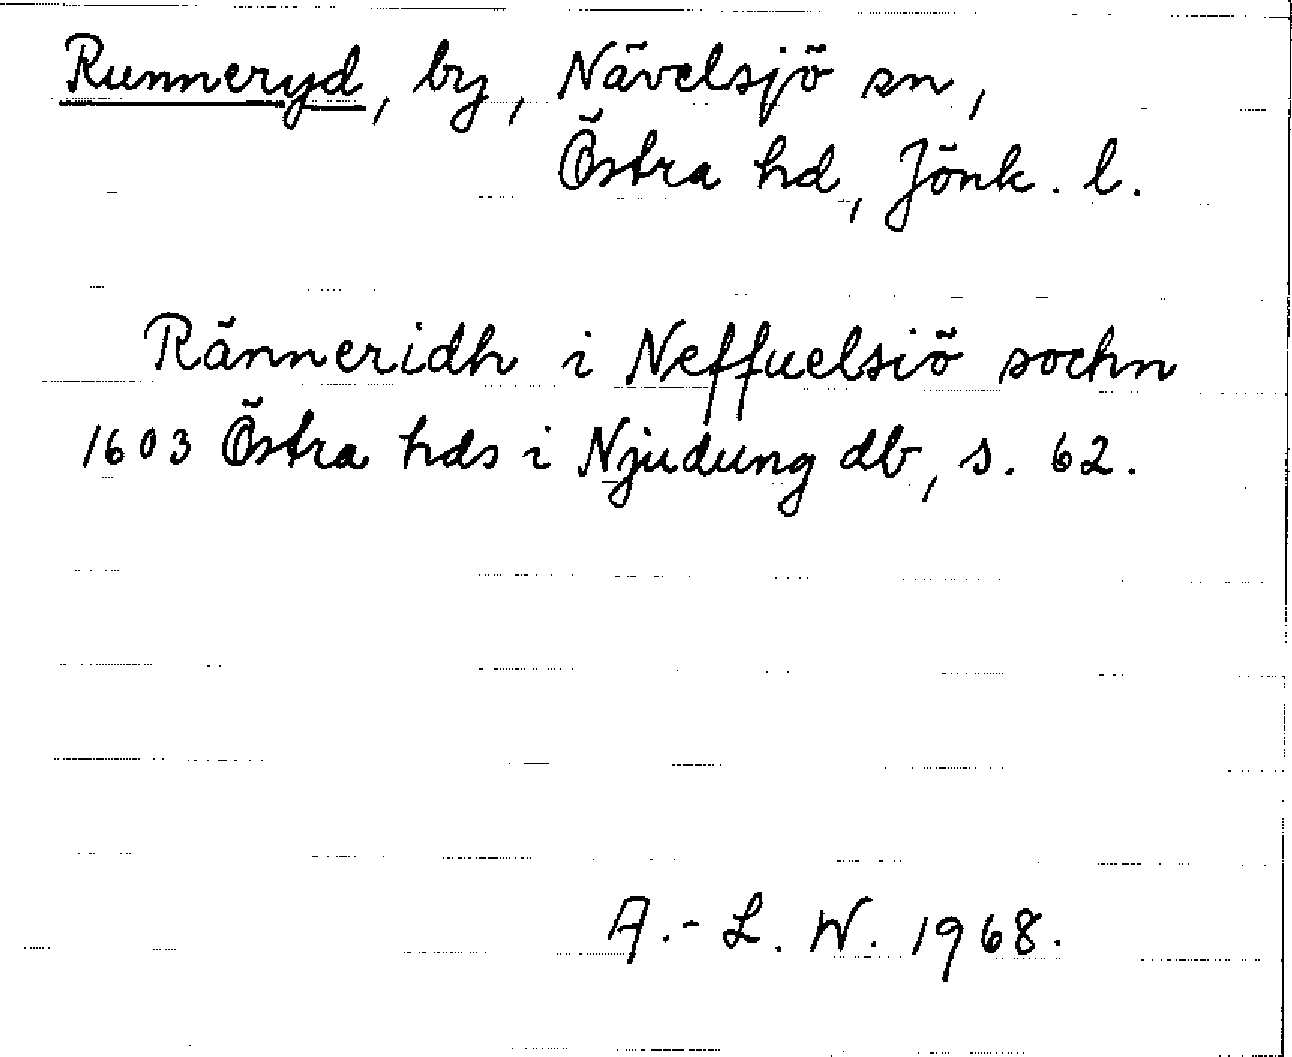 Runneryd, by, Nävelsjö sn,
Östra hd, Jönk. l.
Ränneridh i Neffuelsiö sochn
1603 Östra hds i Njudung db, s. 62.
A.-L. W. 1968.